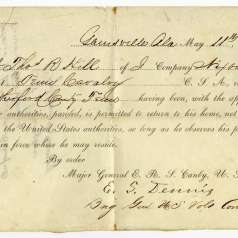 Gainesville, Ala, May 11th
Thos B. Hill of I Company
Cavalry C. S. A.,
having been, with the app
authorities, paroled, is permitted to return to his home, not
the United States authorities, so long as he observes his p
in force where he may reside.
By order
Major General E. R. S. Canby, U. S.
E. S. Dennis
Brig Gen U S Vols Com